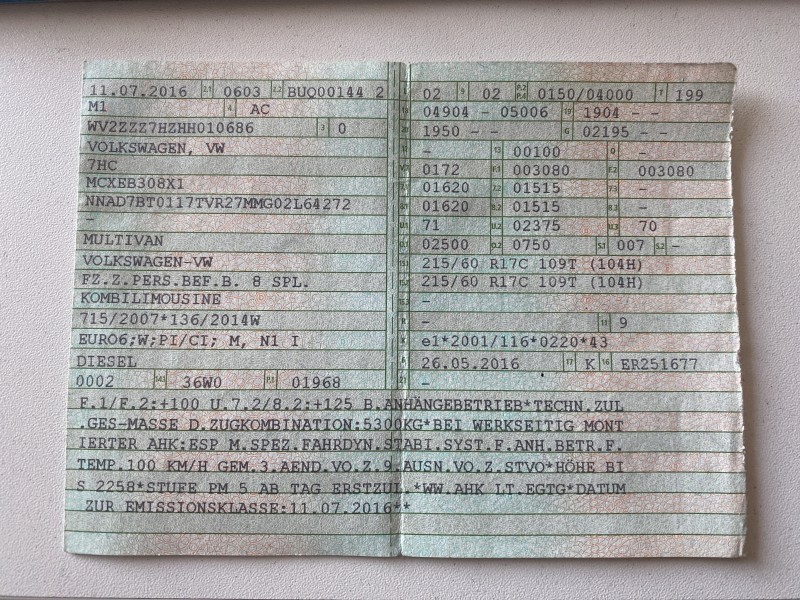 11.07.2016 2.1 0603 2.2 BUQ00144 2
M1 4 AC
WV2ZZZ7HZHH010686 3 0
VOLKSWAGEN, VW
7HC
MCXEB308X1
NNAD7BT0117TVR27MMG02L64272
–
MULTIVAN
VOLKSWAGEN-VW
FZ.Z.PERS.BEF.B. 8 SPL.
KOMBILIMOUSINE
715/2007*136/2014W
EURO6;W;PI/CI; M, N1 I
DIESEL
0002 14.1 36W0 P.1 01968
02 9 02 P.2 P.4 0150/04000 T 199
04904 - 05006 19 1904 - -
1950 - - G 02195 - -
- 13 00100 Q -
0172 F.1 003080 F.2 003080
01620 7.2 01515 7.3 -
01620 8.2 01515 8.3 -
71 U.2 02375 U.3 70
02500 O.2 0750 S.1 007 S.2 -
215/60 R17C 109T (104H)
215/60 R17C 109T (104H)
-
- 11 9
e1*2001/116*0220*43
26.05.2016 17 K 16 ER251677
-
F.1/F.2:+100 U.7.2/8.2:+125 B.ANHÄNGEBETRIEB*TECHN.ZUL
.GES-MASSE D.ZUGKOMBINATION:5300KG*BEI WERKSEITIG MONT
IERTER AHK:ESP M.SPEZ.FAHRDYN.STABI.SYST.F.ANH.BETR.F.
TEMP.100 KM/H GEM.3.AEND.VO.Z.9.AUSN.VO.Z.STVO*HÖHE BI
S 2258*STUFE PM 5 AB TAG ERSTZUL.*WW.AHK LT.EGTG*DATUM
ZUR EMISSIONSKLASSE:11.07.2016**